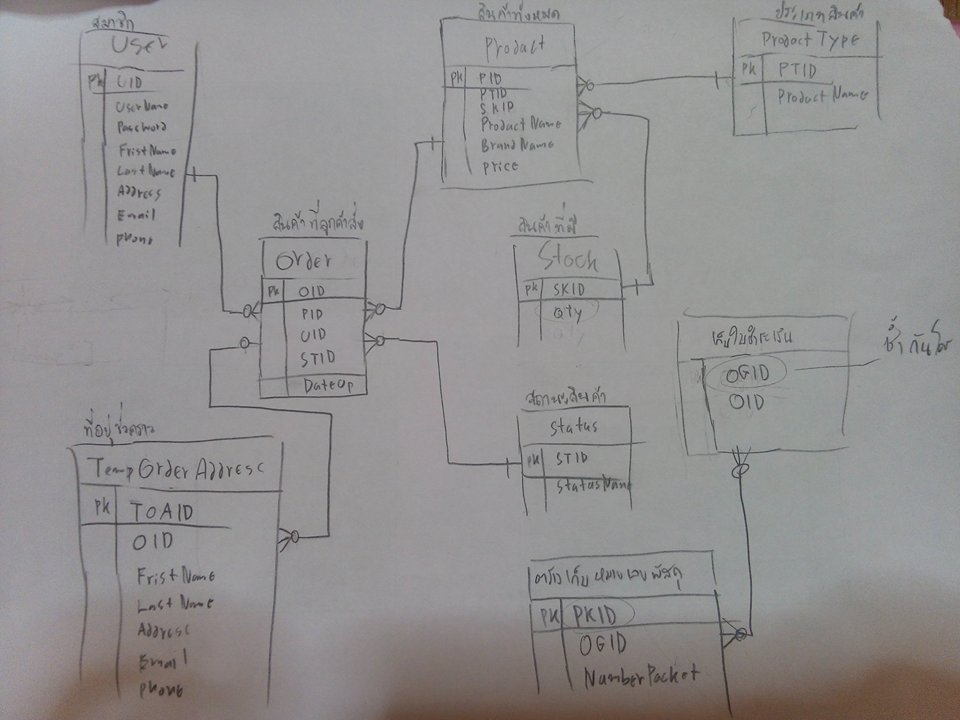 สมาชิก
User
PK UID
UserName
Password
FristName
LastName
Address
Email
Phone
สินค้าทั้งหมด
Product
PK PID
PTID
SKID
ProductName
BrandName
Price
ประเภทสินค้า
ProductType
PK PTID
ProductName
สินค้าที่ลูกค้าสั่ง
Order
PK OID
PID
UID
STID
DateOp
สินค้าที่มี
Stock
PK SKID
QTy
สถานะสินค้า
Status
PK STID
StatusName
เก็บใบชำระเงิน
OGID
OID
ซ้ำกันได้
ที่อยู่ชั่วคราว
TempOrderAddresc
PK TOAID
OID
FristName
LastName
Address
Email
Phone
ตารางเก็บหมายเลขพัสดุ
PK PKID
OGID
NumberPacket